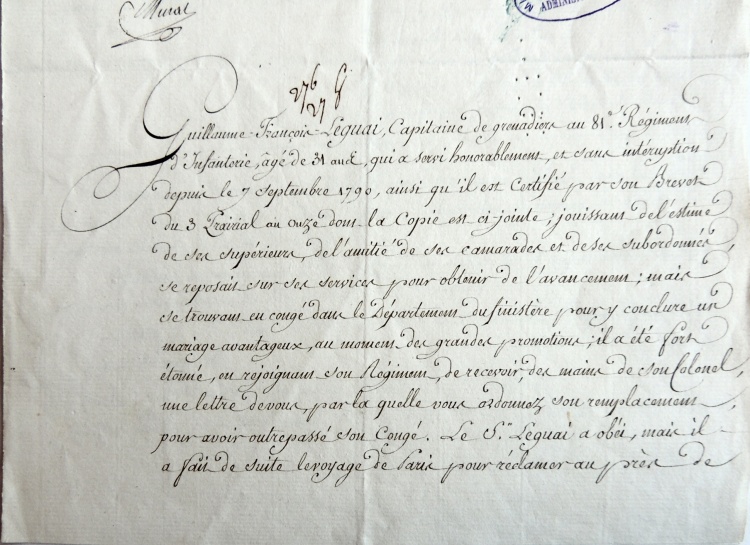 Murat
ADMINIS
276 G
27
Guillaume-François-Léguai, Capitaine de grenadiers au 81e. Régiment
d'Infanterie, âgé de 31 ans, qui a servi honorablement, et sans intéruption
depuis le 7 Septembre 1790, ainsi qu'il est Certifié par son Brevet
du 3 Prairial an onze dont la Copie est ci-jointe; jouissant de l'estime
de ses supérieurs, de l'amitié de ses camarades et de ses subordonnés,
se reposait sur ses services pour obtenir de l'avancement; mais
se trouvant en congé dans le Département du finistère pour y conclure un
mariage avantageux, au moment des grandes promotions; il a été fort
étonné, en rejoignant son Régiment, de recevoir des mains de son Colonel,
une lettre de vous, par la quelle vous ordonnez son remplacement
pour avoir outrepassé son Congé. Le Sr. Léguai a obéi, mais il
a fait de suite le voyage de Paris pour réclamer au près de